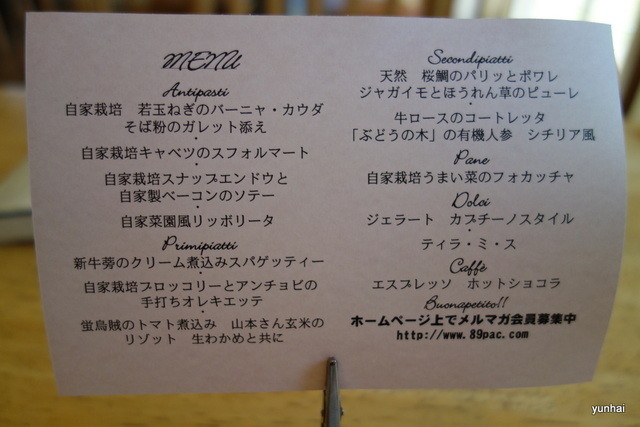 MENU
Antipasti
自家栽培　若玉ねぎのバーニャ・カウダ
そば粉のガレット添え
・
自家栽培キャベツのスフォルマート
・
自家栽培スナップエンドウと
自家製ベーコンのソテー
・
自家菜園風リッボリータ
Primipiatti
新牛蒡のクリーム煮込みスパゲッティー
・
自家栽培ブロッコリーとアンチョビの
手打ちオレキエッテ
・
蛍烏賊のトマト煮込み　山本さん玄米の
リゾット　生わかめと共に
Secondipiatti
天然　桜鯛のパリッとポワレ
ジャガイモとほうれん草のピューレ
・
牛ロースのコートレッタ
「ぶどうの木」の有機人参　シチリア風
Pane
自家栽培うまい菜のフォカッチャ
Dolci
ジェラート　カプチーノスタイル
・
ティラ・ミ・ス
Caffè
エスプレッソ　ホットショコラ
Buonapetito!!
ホームページ上でメルマガ会員募集中
http://www.89pac.com
yunhai